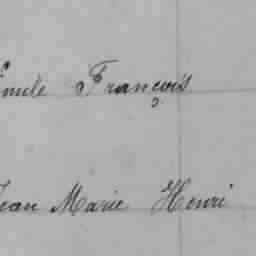 Emile François
Jean Marie Henri